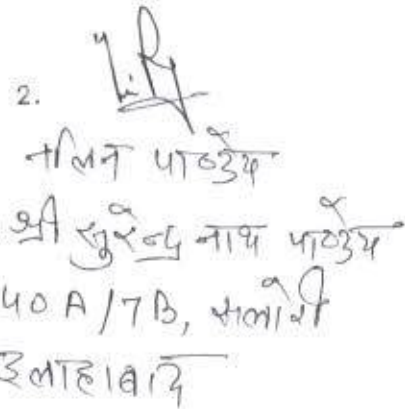 2.
नलिन पाण्डेय
श्री सुरेन्द्र नाथ पाण्डेय
40 A/7B, सलोरी
इलाहाबाद